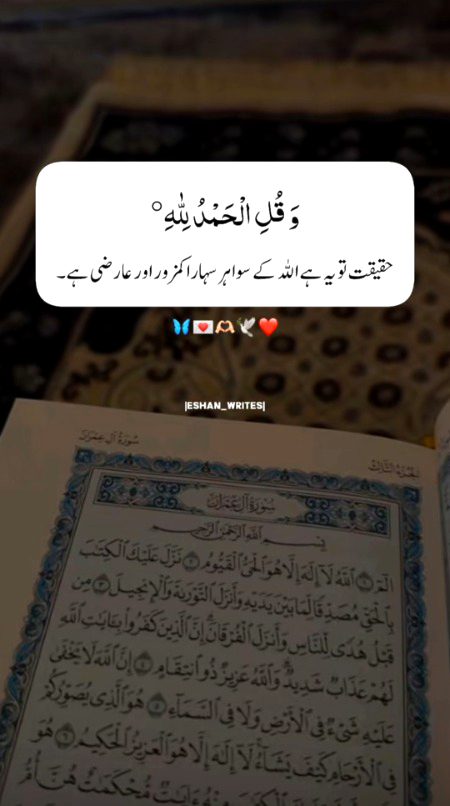 وَ قُلِ الْحَمْدُ لِلّٰهِ °
حقیقت تو یہ ہے اللہ کے سوا ہر سہارا کمزور اور عارضی ہے۔
🦋💌🫶🏼🕊️❤️
|ESHAN_WRITES|
سُورَةُ آلِ عِمْرَانَ
الجزء الثالث
سُورَةُ آلِ عِمْرَانَ
بِسْمِ اللَّهِ الرَّحْمَٰنِ الرَّحِيمِ
الٓمٓ ١ اللَّهُ لَا إِلَٰهَ إِلَّا هُوَ الْحَيُّ الْقَيُّومُ ٢ نَزَّلَ عَلَيْكَ الْكِتَٰبَ
بِالْحَقِّ مُصَدِّقًا لِّمَا بَيْنَ يَدَيْهِ وَأَنزَلَ التَّوْرَىٰةَ وَالْإِنجِيلَ ٣ مِن
قَبْلُ هُدًى لِّلنَّاسِ وَأَنزَلَ الْفُرْقَانَ إِنَّ الَّذِينَ كَفَرُوا بِـَٔايَٰتِ اللَّهِ
لَهُمْ عَذَابٌ شَدِيدٌ وَاللَّهُ عَزِيزٌ ذُو انتِقَامٍ ٤ إِنَّ اللَّهَ لَا يَخْفَىٰ
عَلَيْهِ شَيْءٌ فِي الْأَرْضِ وَلَا فِي السَّمَاءِ ٥ هُوَ الَّذِي يُصَوِّرُكُمْ
فِي الْأَرْحَامِ كَيْفَ يَشَاءُ لَا إِلَٰهَ إِلَّا هُوَ الْعَزِيزُ الْحَكِيمُ ٦ هُوَ
ءَايَٰتٌ مُّحْكَمَٰتٌ هُنَّ أُمُّ